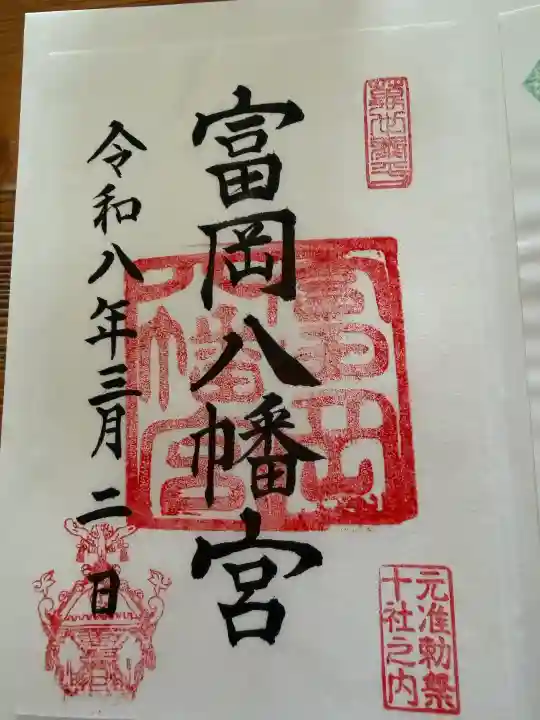 富岡八幡宮
令和八年三月二日
元准勅祭
十社之内
富岡
八幡宮